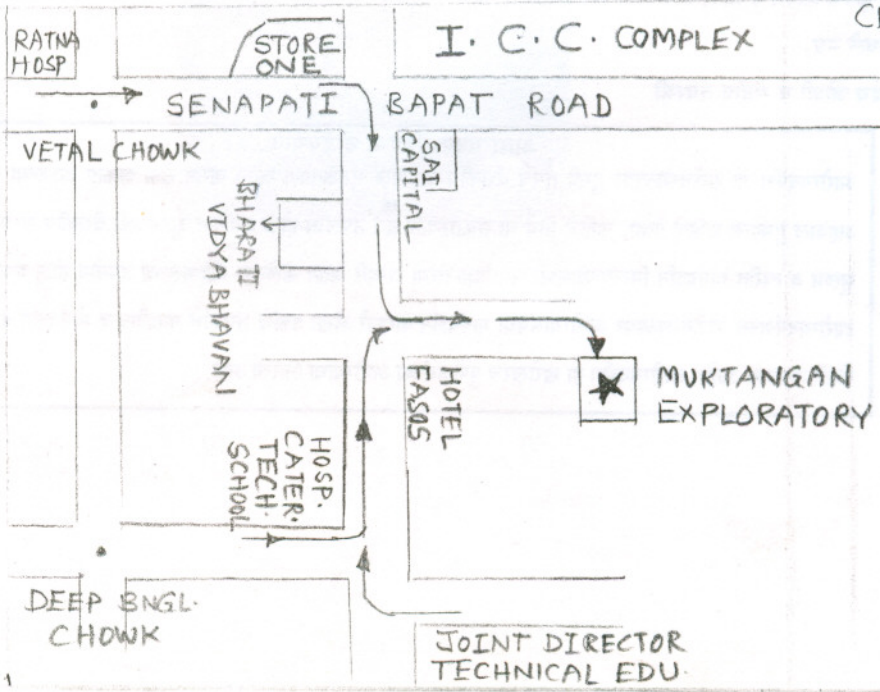 RATNA
HOSP
STORE
ONE
I. C. C. COMPLEX
SENAPATI BAPAT ROAD
VETAL CHOWK
SAI
CAPITAL
BHARATI
VIDYA BHAVAN
HOTEL
EASOS
MUKTANGAN
EXPLORATORY
HOSP.
CATER.
TECH.
SCHOOL
DEEP BNGL.
CHOWK
JOINT DIRECTOR
TECHNICAL EDU.